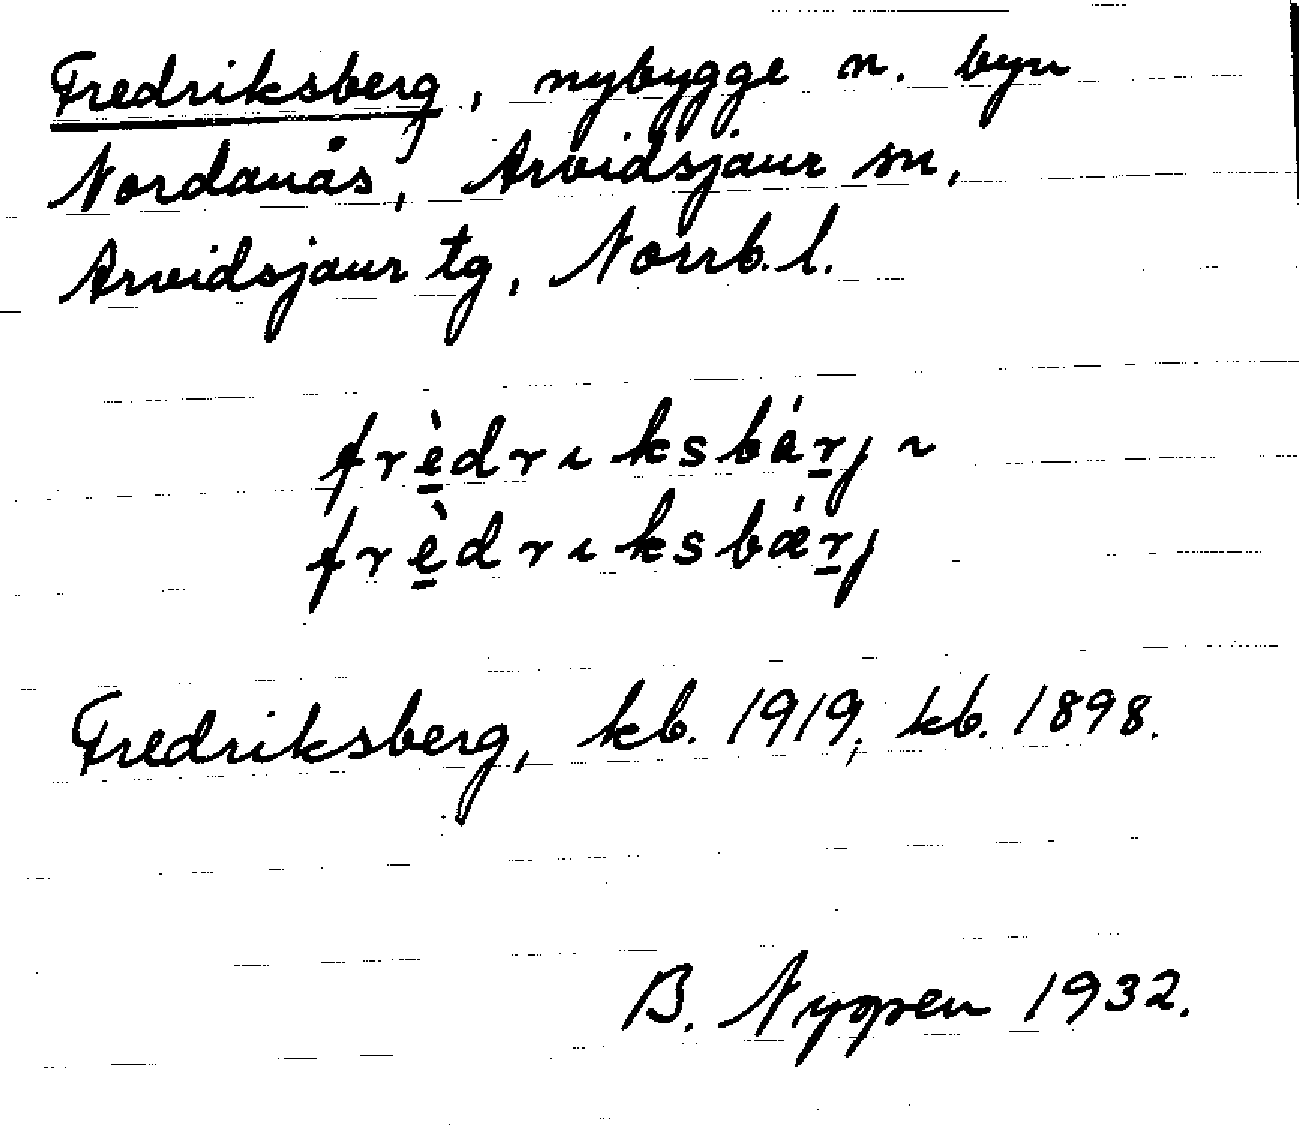 Fredriksberg, nybygge n. byn
Nordanås, Arvidsjaur sn,
Arvidsjaur tg, Norrb. l.
frè̱drıksbáṟj ~
frè̱drıksbǽṟj
Fredriksberg, kb. 1919, kb. 1898.
B. Nyppen 1932.